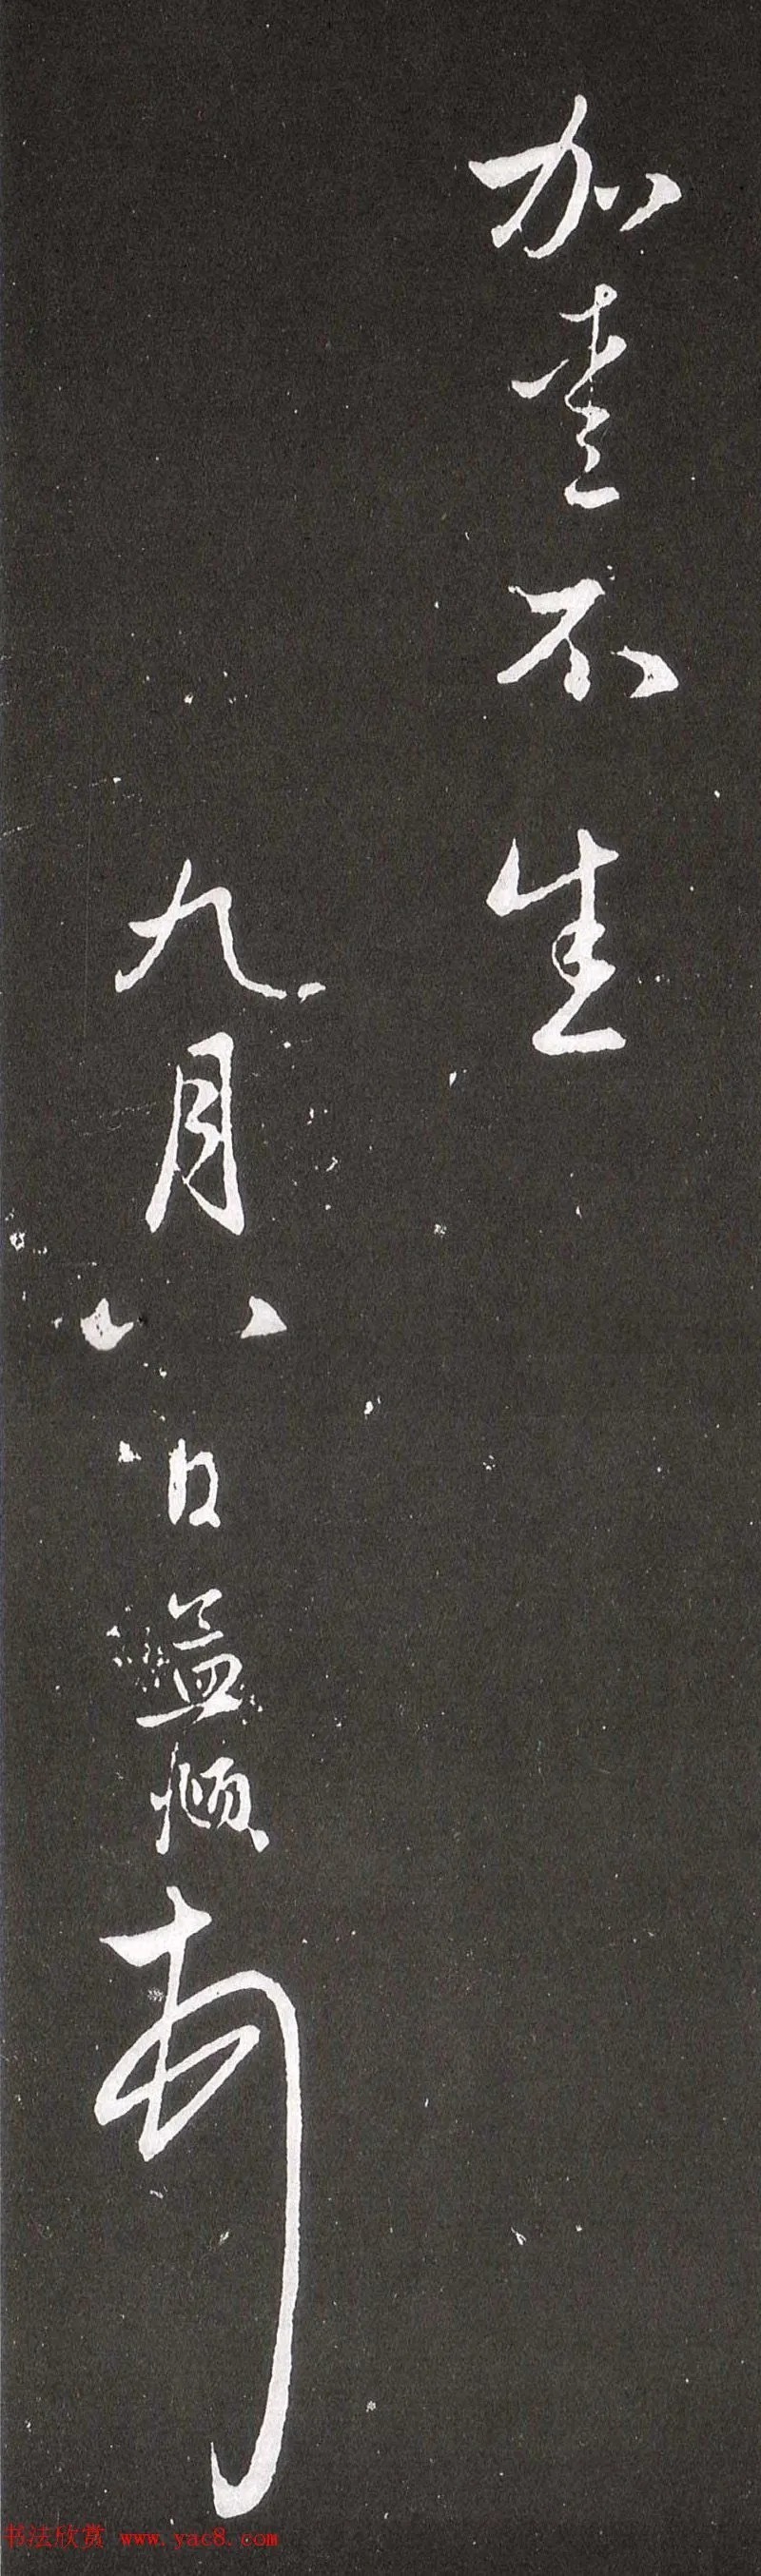 加
不生
九月八日益
书法欣赏 www.yac8.com